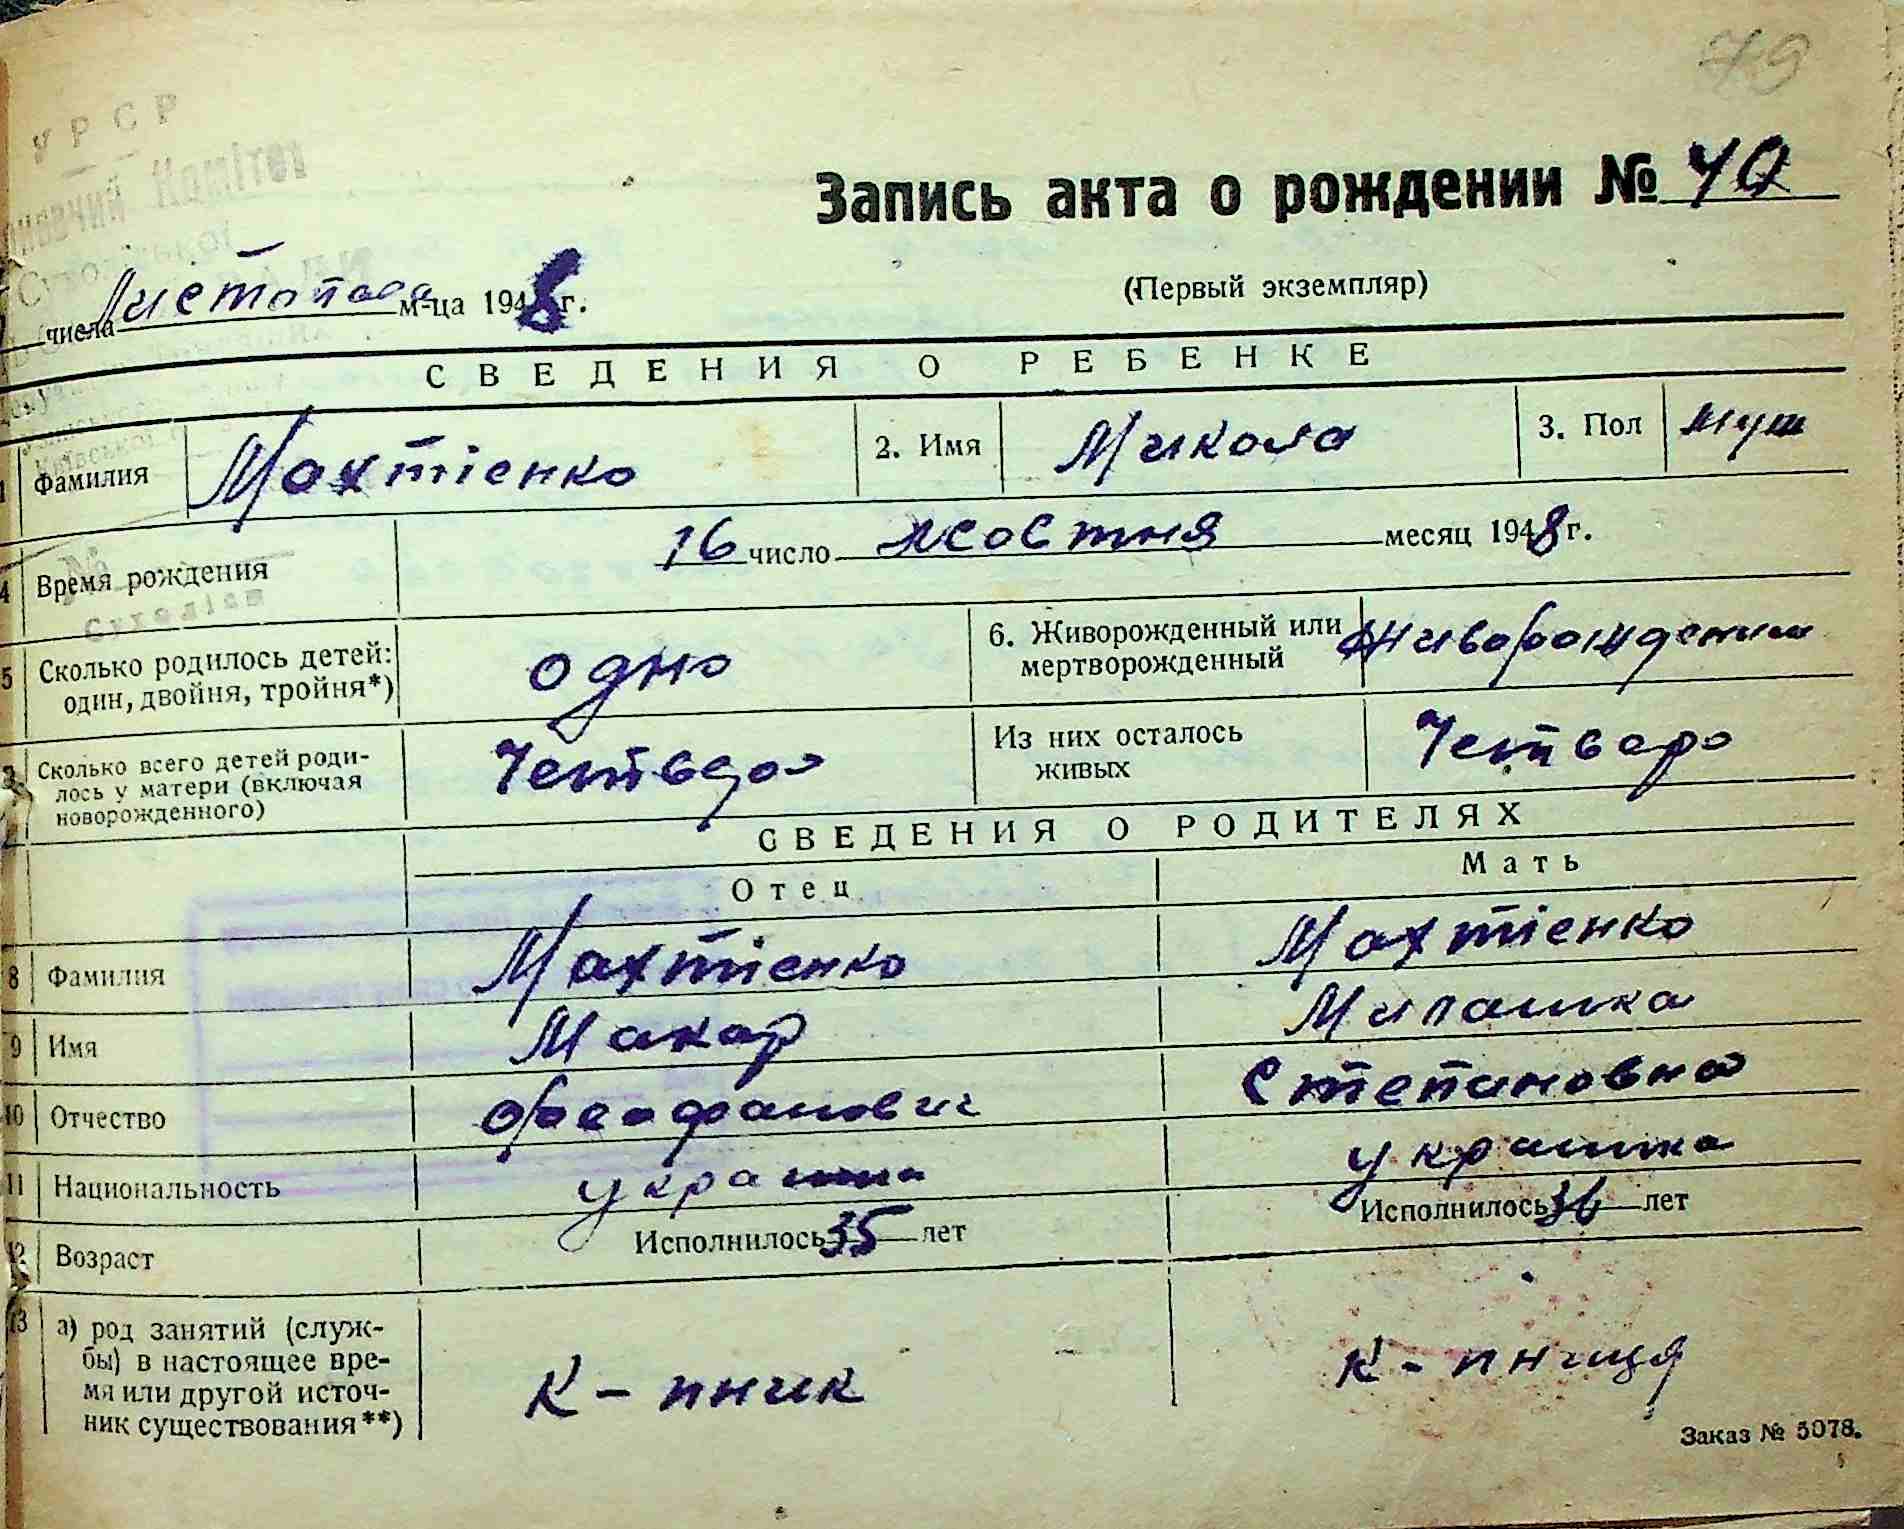 79
УРСР
Комітет
Запись акта о рождении №
(Первый экземпляр)
числа Листопада м-ца 1948 г.
СВЕДЕНИЯ О РЕБЕНКЕ
1 Фамилия Махтіенко 2. Имя Микола 3. Пол муш
4 Время рождения 16 число жовтня месяц 1948 г.
5 Сколько родилось детей: один, двойня, тройня*) одно 6. Живорожденный или мертворожденный
Сколько всего детей родилось у матери (включая новорожденного) Четверо Из них осталось живых Четверо
СВЕДЕНИЯ О РОДИТЕЛЯХ
Отец Мать
8 Фамилия Махтіенко Махтіенко
9 Имя Макар Милашка
10 Отчество Феофанович Степановна
11 Национальность
12 Возраст Исполнилось 35 лет Исполнилось 36 лет
13 а) род занятий (служ-
бы) в настоящее вре-
мя или другой источ-
ник существования**) К-пник К-пниця
Заказ № 5078.